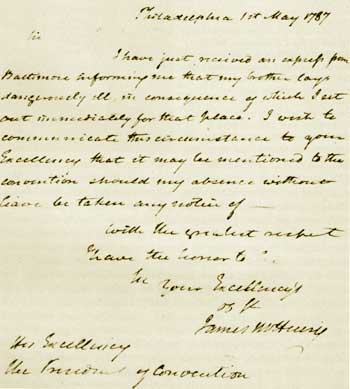 Philadelphia 1st May 1787
Sir
I have just received an express from
Baltimore informing me that my brother lays
dangerously ill, in consequence of which I set
out immediately for that place. I wish to
communicate this circumstance to your
Excellency that it may be mentioned to the
convention should my absence without
leave be taken any notice of —
With the greatest respect
I have the honor to be
Sir Your Excellency's
James McHenry
His Excellency
the President of Convention